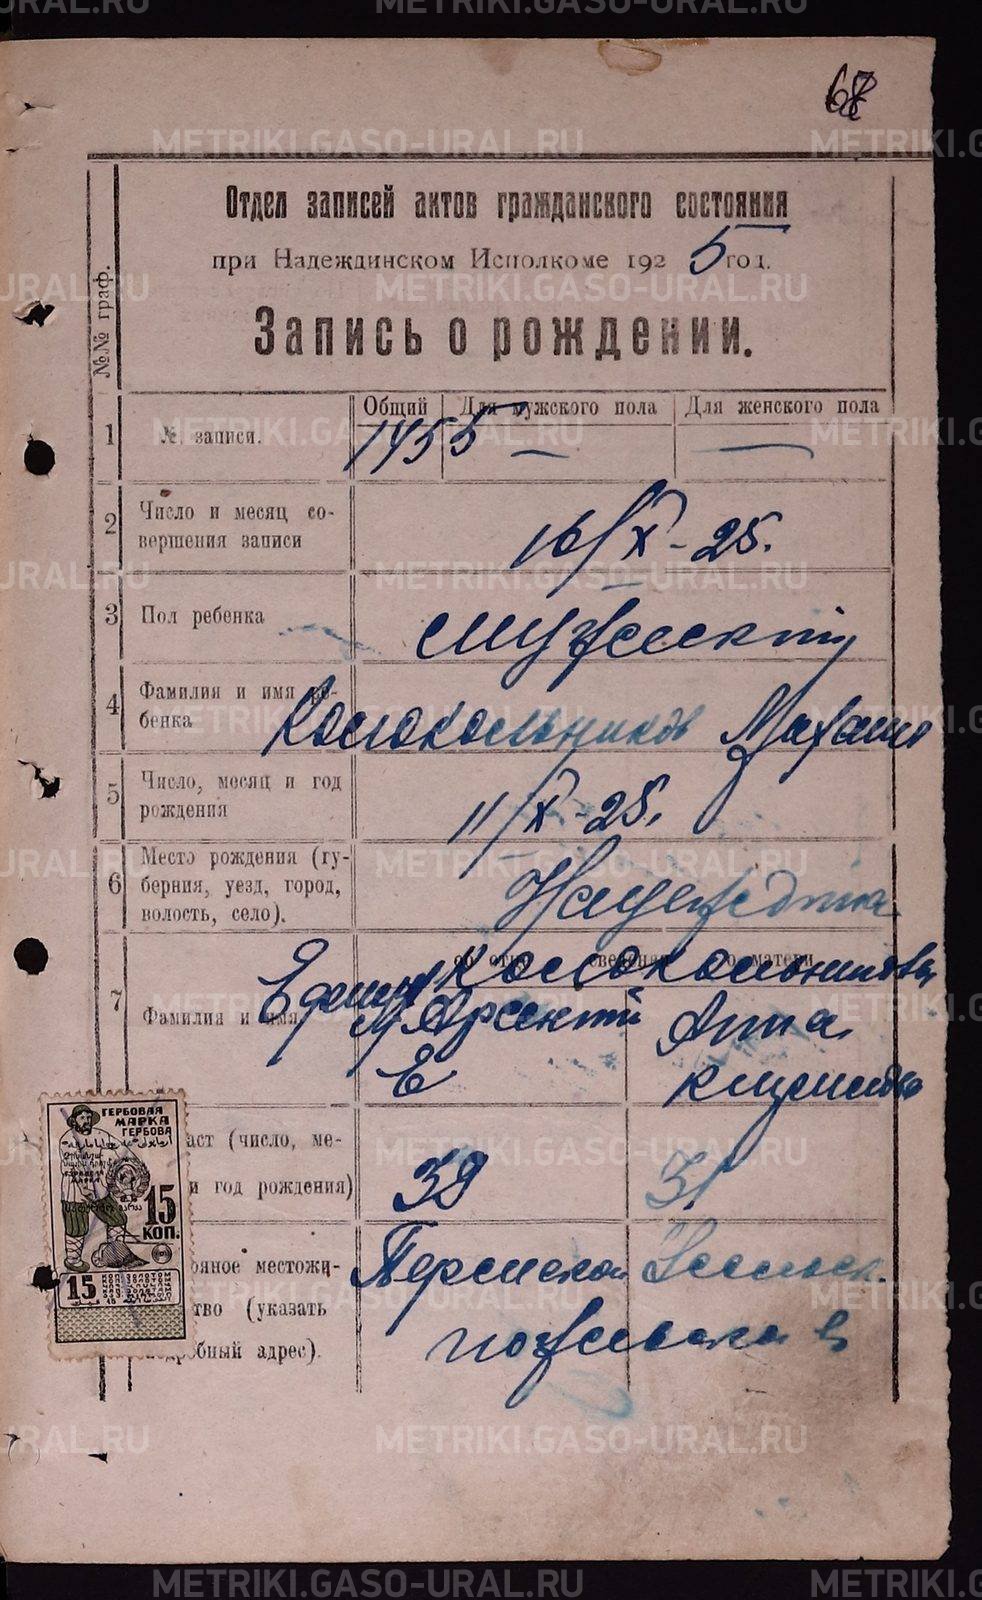 METRIKI.GASO-URAL.RU
Отдел записей актов гражданского состояния
при Надеждинском Исполкоме 1925 год.
Запись о рождении.
№№ граф.
Общий Для мужского пола Для женского пола
1 № записи. 1455 — —
2 Число и месяц со-
вершения записи 16/X - 25.
3 Пол ребенка мужеский
4 Фамилия и имя ре-
бенка Колокольников Михаил
5 Число, месяц и год
рождения 11/X - 25.
6 Место рождения (гу-
берния, уезд, город,
волость, село). Надеждинск
об отце сведения о матери
Колокольникова
7 Фамилия и имя Ефим Анна
Е
аст (число, ме-
и год рождения) 38 31
оянное местожи-
тво (указать
подробный адрес). Пермской Усольск.
ГЕРБОВАЯ
МАРКА
ГЕРБОВА
15
КОП.
15